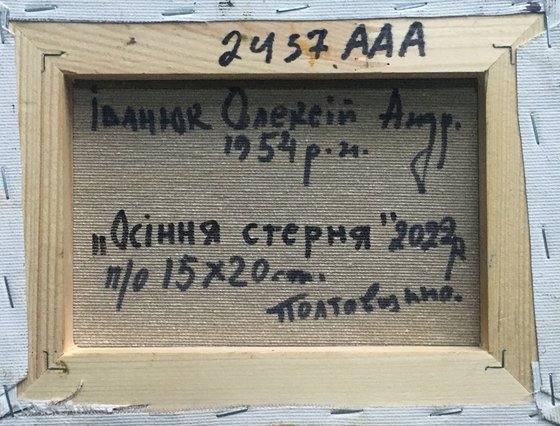 2457 ААА
Іванюк Олексій Андр.
1954 р.н.
„Осіння стерня" 2022р
п/о 15х20 см.
Полтавщина.